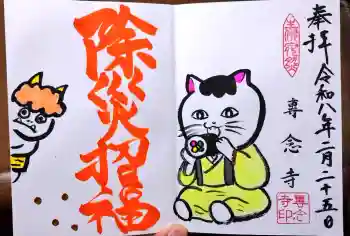 奉拝
令和八年二月二十五日
専念寺
除災招福
専念寺印